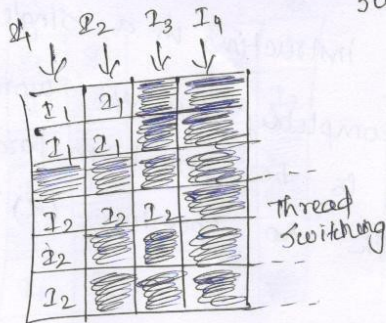 I1 I2 I3 I4
I1 I1
I1 I1
I2 I2 I2
Thread
Switching
I2
I2